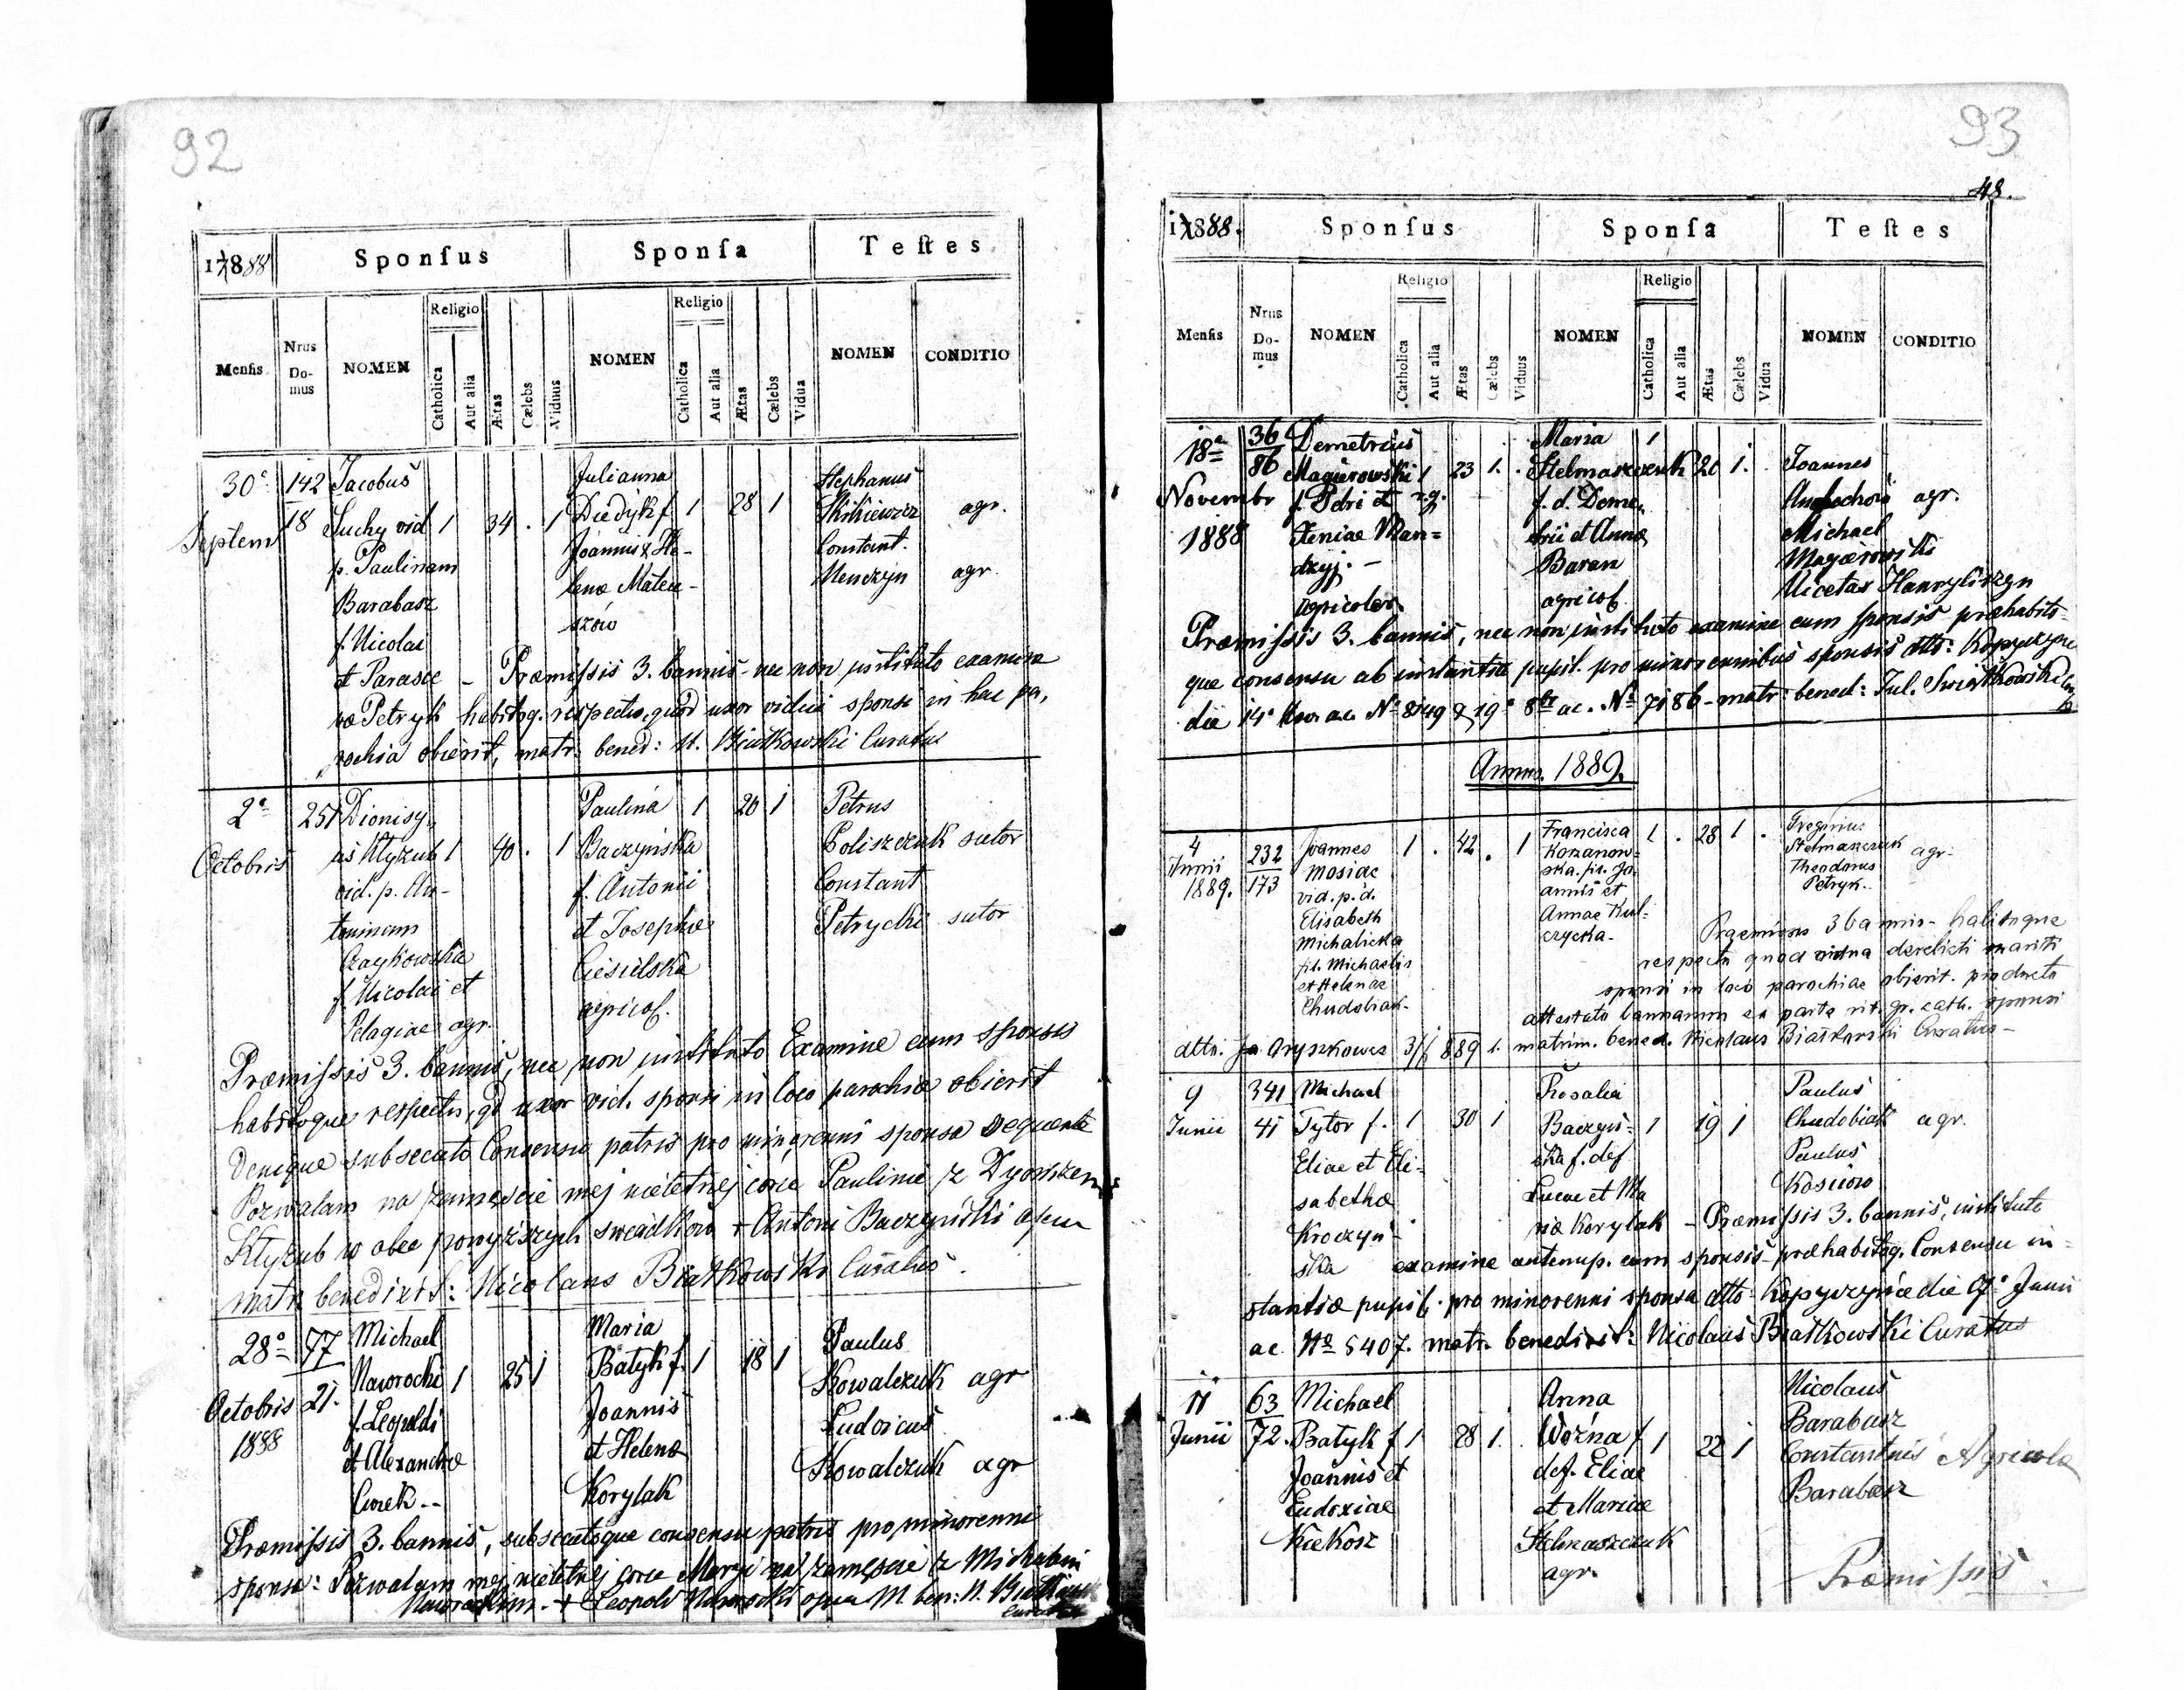 92
17888
Sponſus
Sponſa
Teſtes
Menſis
Nrus Domus
NOMEN
Religio
Catholica
Aut alia
Ætas
Cælebs
Viduus
NOMEN
Religio
Catholica
Aut alia
Ætas
Cælebs
Vidua
NOMEN
CONDITIO
30ª 142 Jacobus Julianna Stephanus
Septem 18 Suchy vid 1 34 . 1 Diedyk f 1 28 1 agr.
p. Paulinam Joannis & He- Constant.
Barabasz lenæ Mateu- Menczyn agr.
f. Nicolai szów
et Parasce - Præmiſsis 3. bannis - nec non instituto examine
væ Petryk habitoq. respectu, quod uxor vidui sponsi in hac pa,
rochia obierit, matr. bened: N. Białkowski Curatus
2ª 251 Dionisy, Paulina 1 20 1 Petrus
Octobris us Klyzub 1 40 . 1 Baczyńska Poliszczuk sutor
vid. p. An- f. Antonii Constant
toninam et Josephæ Petrycki sutor
Czaykowska Ciesielska
f. Nicolai et agricol.
Pelagiae agr.
Præmiſsis 3. bannis, nec non instituto Examine cum sponsis
habitoque respectu, qd uxor vid. sponsi in loco parochiæ obierit
Denique subsecuto Consensu patris pro minorenni sponsa sequente
Pozwalam na zamęscie mej nieletniej córce Paulinie z Dyonizem
Klyzub w obec powyższych swiadków + Antoni Baczyński ojciec
matr. benedixit: Nicolaus Białkowski Curatus.
28ª 77 Michael Maria Paulus
Octobris 21. Naworocki 1 25 1 Batyk f. 1 18 1 Kowalczuk agr
1888 f. Leopoldi Joannis Ludovicus
et Alexandræ et Helenæ Kowalczuk agr
Ciurek -- Korylak
Præmiſsis 3. bannis, subsecutoque consensu patris pro minorenni
sponsa: Pozwalam mej nieletniej córce Maryi na zamęscie z Michałem
Naworockim. + Leopold Naworocki ojciec M. ben: N. Białkowski
Curatus
93
48.
17888.
Sponſus
Sponſa
Teſtes
Menſis
Nrus Domus
NOMEN
Religio
Catholica
Aut alia
Ætas
Cælebs
Viduus
NOMEN
Religio
Catholica
Aut alia
Ætas
Cælebs
Vidua
NOMEN
CONDITIO
18ª 36 Demetrius Maria 1
86 Magierowski 1 23 1. Stelmaszczuk 20 1. Joannes
Novembr f. Petri et r.g. f. d. Deme, agr.
1888 Xeniae Man= trii et Annæ Michael
dzyj. - Baran Magierowski
agricolar. agricol. Nicetas Hawryliszyn
Præmiſsis 3. bannis, nec non instituto examine cum sponsis præhabito-
que consensu ab instantia pupil. pro minorennibus sponsis dtto: Kopyczyńce
die 14ª ac. Nº 8149 & 19ª 8br ac. Nº 7186 - matr: bened: Jul. Swiątkowski
Anno. 1889.
4 232 Joannes 1 . 42 . 1 Francisca 1 . 28 1 . Gregorius
Junii 173 Mosiac Korzanow= Stelmaszczuk agr.
1889. vid. p. d. ska. fil. Jo- Theodorus
Elisabeth annis et Petryk.
Michalicka Annae Kul-
fil. Michaelis czycka. Praemissis 3 bannis - habitoque
et Helenae respectu quod vidua derelicti mariti
Chudobiak. sponsi in loco parochiae obierit. producto
attestato bannorum ex parte rit. gr. cath. sponsi
dtto. Oryszkowce 3/6 889 1. matrim. bened. Nicolaus Białkowski Curatus -
9 341 Michael Rosalia Paulus
Junii 41 Tytor f. 1 30 1 Baczyń- 1 19 1 Chudobiak agr.
Eliae et Eli- ska f. def Paulus
sabethæ Lucae et Ma Kosciów
Kroczyń- riæ Korylak - Præmiſsis 3. bannis, instituto
ska examine antenup. cum sponsis - præhabitoq. Consensu in=
stantiæ pupil. pro minorenni sponsa dtto Kopyczyńce die 9ª Junii
ac. Nº 5407. matr. benedixit: Nicolaus Białkowski Curatus
11 63 Michael Anna Nicolaus
Junii 72. Batyk f 1 28 1. Woźna f 1 22 1 Barabasz
Joannis et def. Eliae Constantinus Agricolæ
Eudoxiae et Mariae Barabasz
Kiekosz Stelmaszczuk
agr.
Præmiſsis